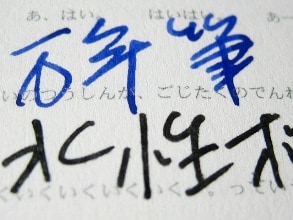 あ、はい。 はいはい。 あ
万年筆
いのつうしんが、ごじたくのでんわ
水性
くいくいくいくいく。 ってい